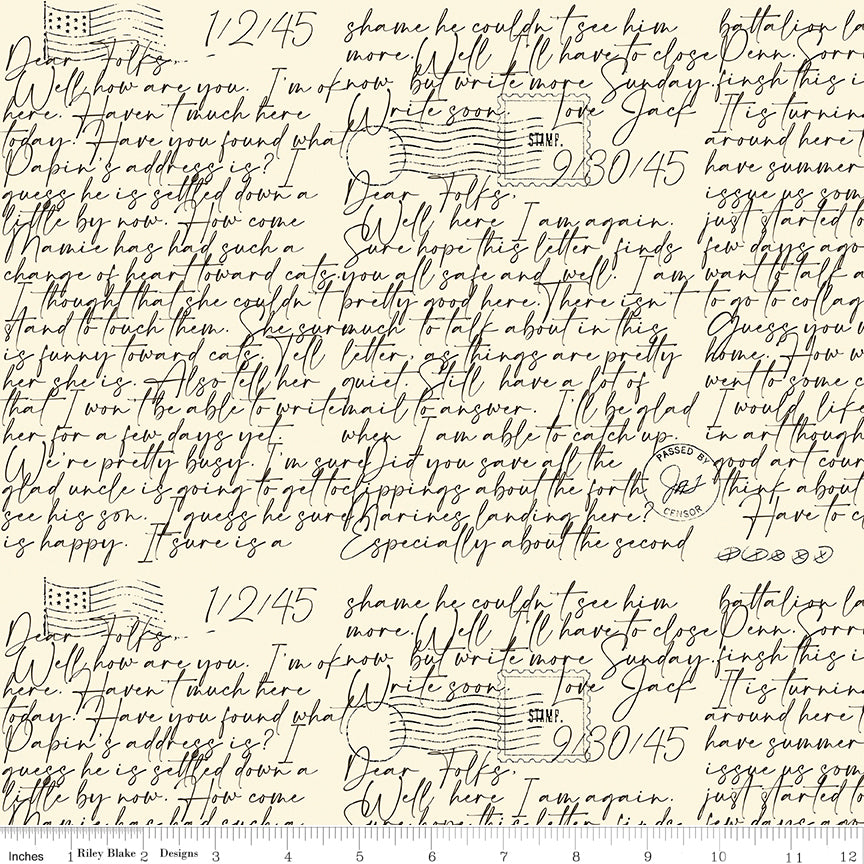 1/2/45
Dear Folks,
Well, how are you. I'm ok
here. Haven't much here
today. Have you found what
address is? I
guess he is settled down a
little by now. How come
Mamie has had such a
change of heart toward cats.
I thought that she couldn't
stand to touch them. She sur
is funny toward cats. Tell
her she is. Also tell her
that I won't be able to write
her for a few days yet.
We're pretty busy. I'm sure
glad uncle is going to get to
see his son. I guess he sure
is happy. It sure is a
shame he couldn't see him
more. Well I'll have to close
now but write more Sunday.
Write soon. Love Jack
STAMP.
9/30/45
Dear Folks,
Well here I am again.
Sure hope this letter finds
you all safe and well. I am
pretty good here. There isn't
much to talk about in this
letter, as things are pretty
quiet. Still have a lot of
mail to answer. I'll be glad
when I am able to catch up.
Did you save all the
clippings about the forth
Marines landing here?
Especially about the second
PASSED BY
CENSOR
battalion la
Penn. Sorr
finsh this i
It is turnin
around here t
have summer
issue us som
just started to
few days ago
want to talk a
to go to collag
Guess you w
home. How w
went to some c
I would lik
in art though
good art cour
think about
Have to c
1/2/45
Dear Folks,
Well, how are you. I'm ok
here. Haven't much here
today. Have you found what
address is? I
guess he is settled down a
little by now. How come
Mamie has had such a
shame he couldn't see him
more. Well I'll have to close
now but write more Sunday.
Write soon. Love Jack
STAMP.
9/30/45
Dear Folks,
Well here I am again.
Sure hope this letter finds
battalion la
Penn. Sorr
finsh this i
It is turnin
around here t
have summer
issue us som
just started to
few days ago
Inches 1 Riley Blake 2 Designs 3 4 5 6 7 8 9 10 11 12